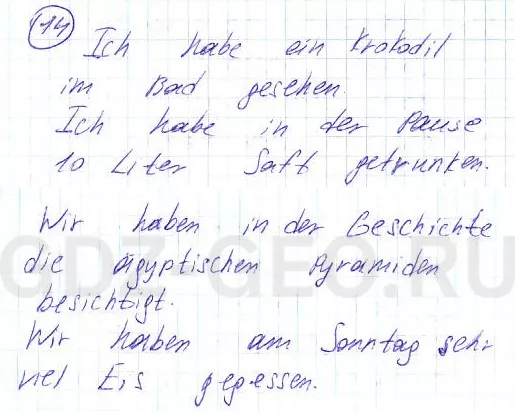 14
Ich habe ein Krokodil
im Bad gesehen.
Ich habe in der Pause
10 Liter Saft getrunken.
Wir haben in der Geschichte
die ägyptischen Pyramiden
besichtigt.
Wir haben am Sonntag sehr
viel Eis gegessen.
GDZ-GEO.RU